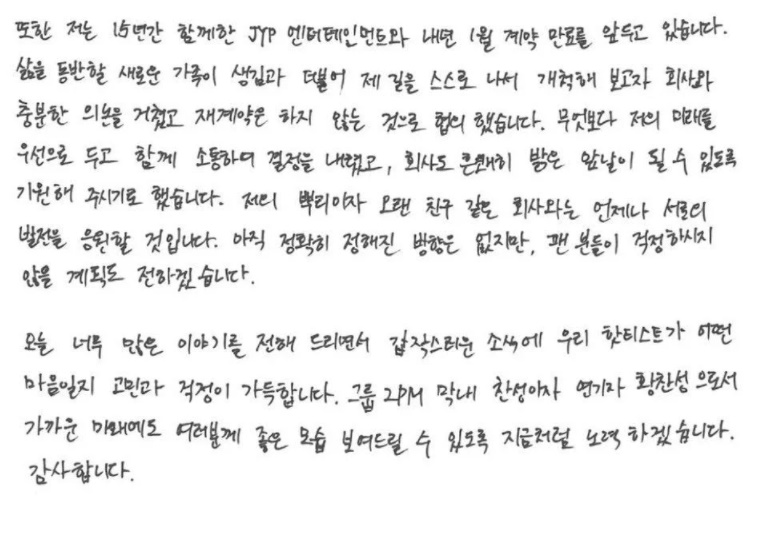 또한 저는 15년간 함께한 JYP 엔터테인먼트와 내년 1월 계약 만료를 앞두고 있습니다.
삶을 동반할 새로운 가족이 생김과 더불어 제 길을 스스로 나서 개척해 보고자 회사와
충분한 의논을 거쳤고 재계약은 하지 않는 것으로 협의 했습니다. 무엇보다 저의 미래를
우선으로 두고 함께 소통하며 결정을 내렸고, 회사도 흔쾌히 밝은 앞날이 될 수 있도록
기원해 주시기로 했습니다. 저의 뿌리이자 오랜 친구 같은 회사와는 언제나 서로의
발전을 응원할 것입니다. 아직 정확히 정해진 방향은 없지만, 팬 분들이 걱정하시지
않을 계획도 전하겠습니다.
오늘 너무 많은 이야기를 전해 드리면서 갑작스러운 소식에 우리 핫티스트가 어떤
마음일지 고민과 걱정이 가득합니다. 그룹 2PM 막내 찬성이자 연기자 황찬성 으로서
가까운 미래에도 여러분께 좋은 모습 보여드릴 수 있도록 지금처럼 노력하겠습니다.
감사합니다.